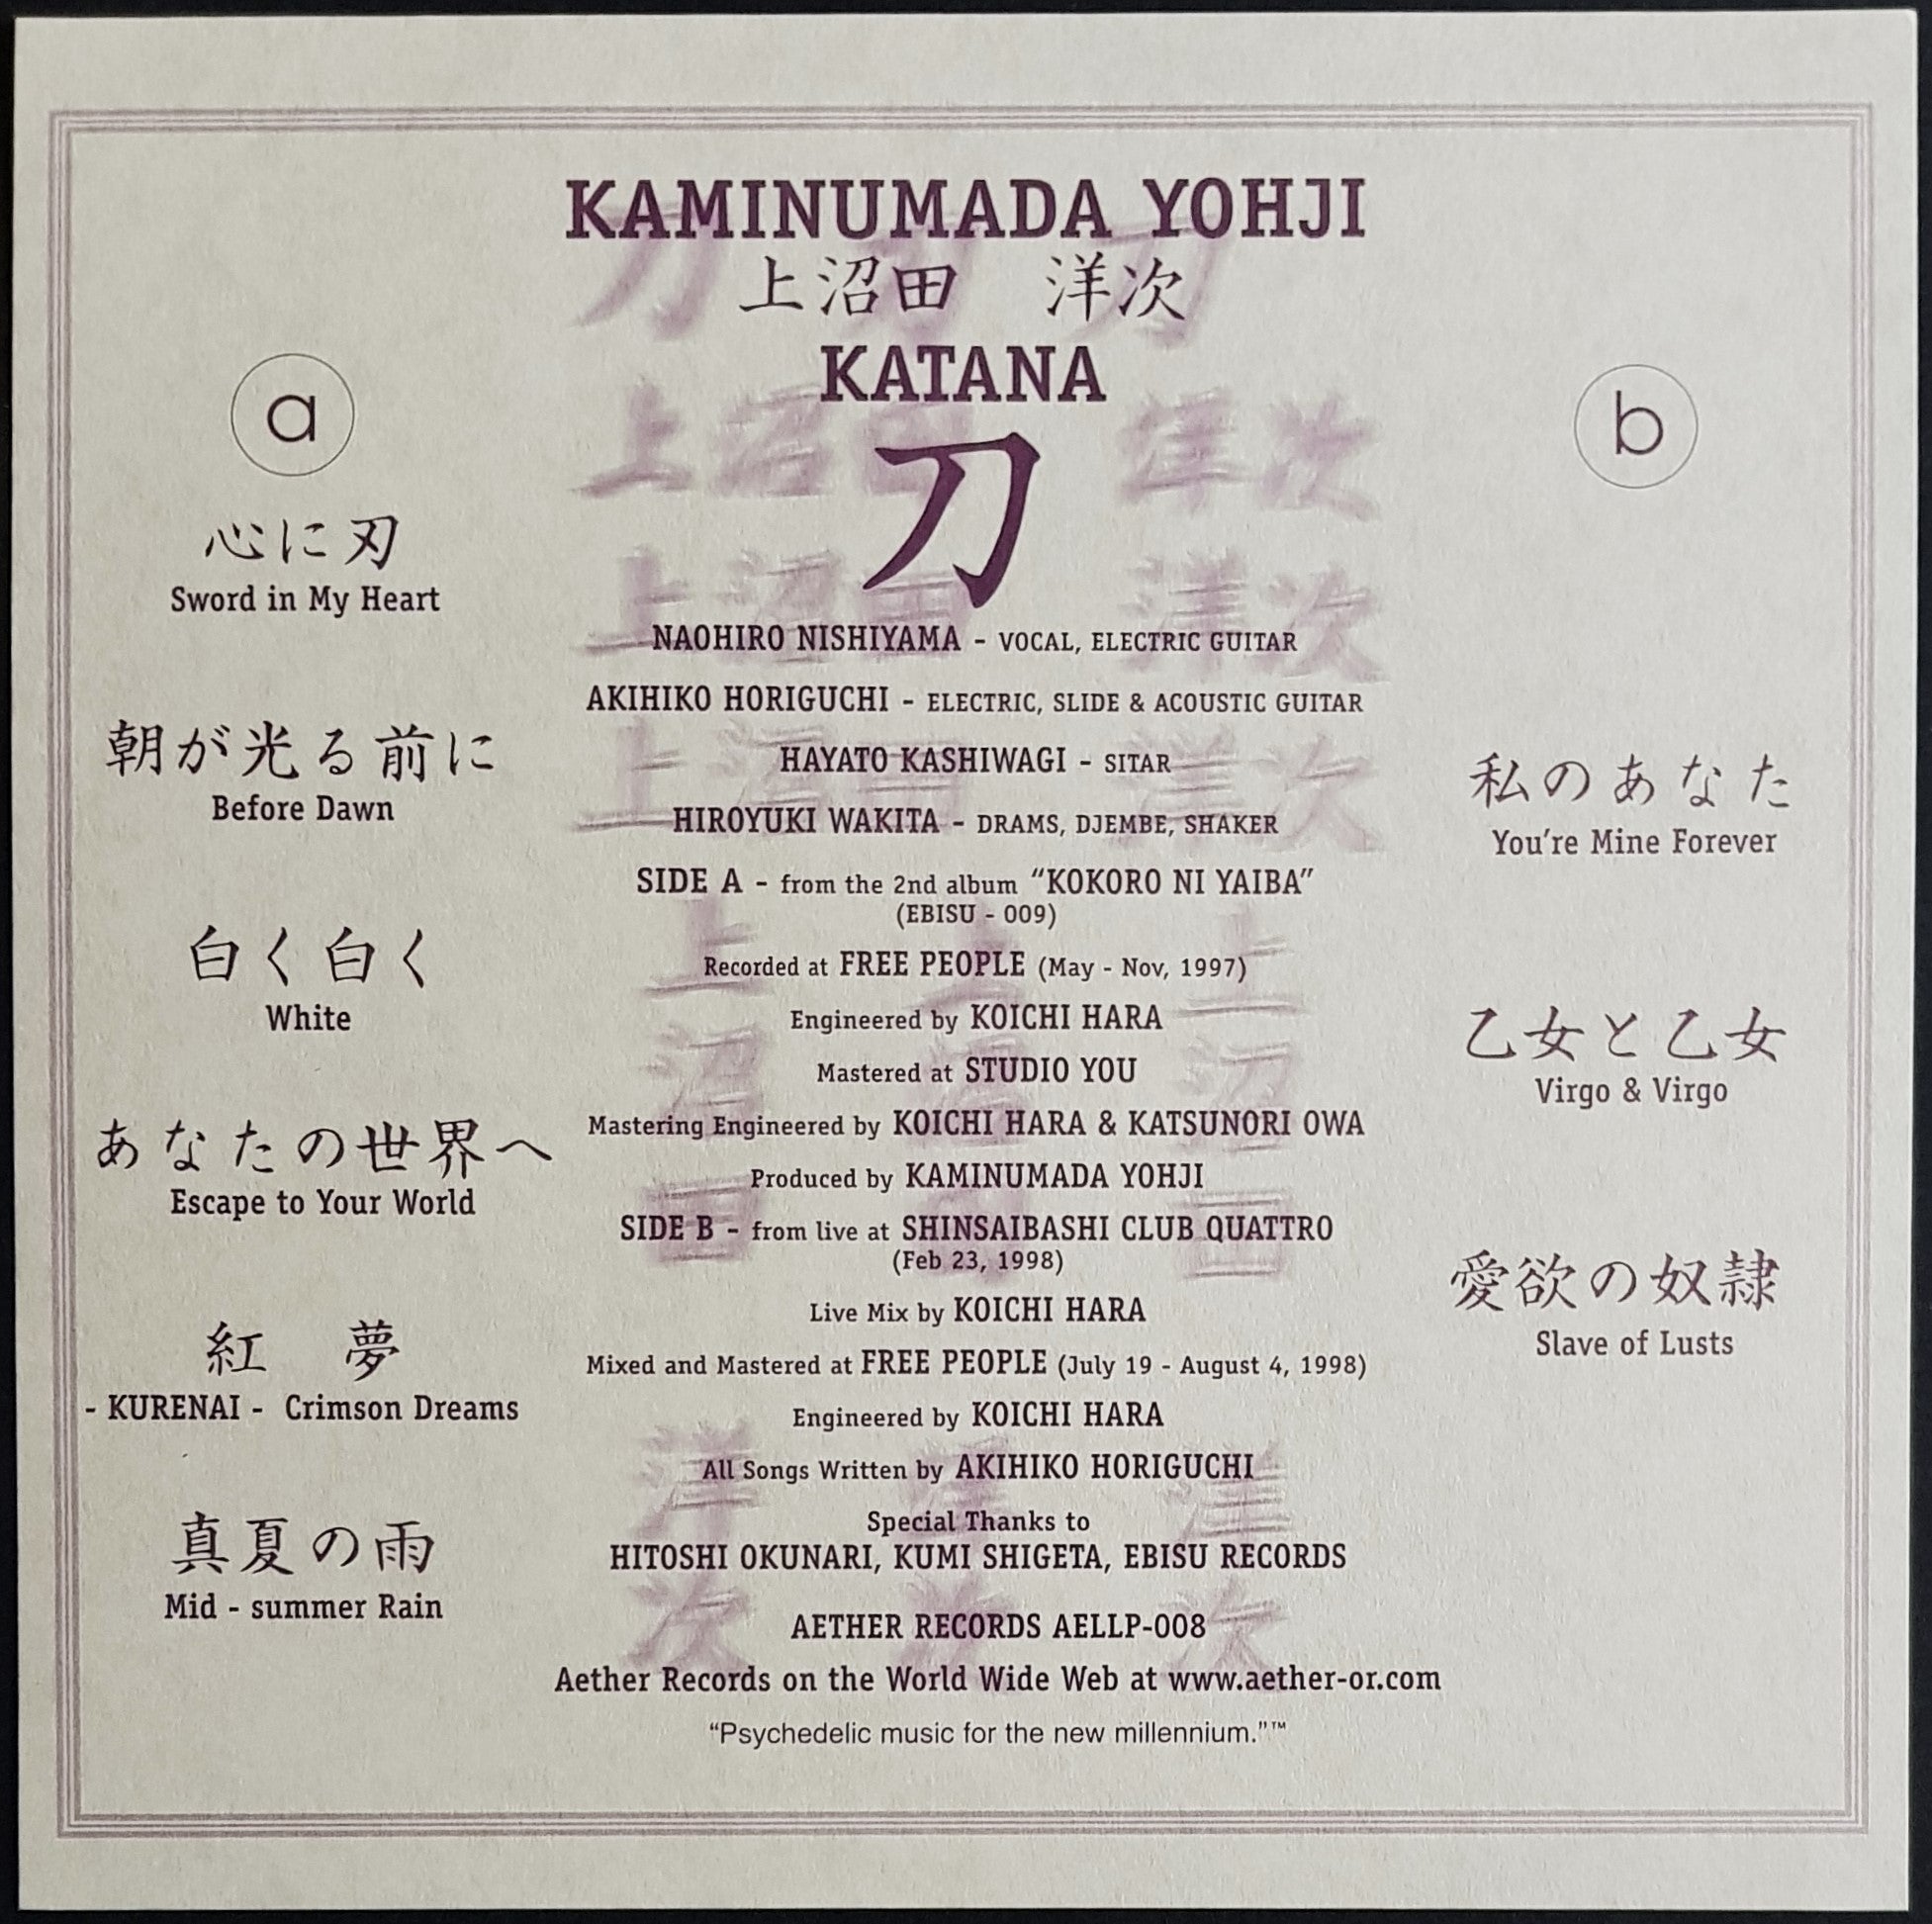 KAMINUMADA YOHJI
上沼田　洋次
KATANA
刀
a
心に刃
Sword in My Heart
朝が光る前に
Before Dawn
白く白く
White
あなたの世界へ
Escape to Your World
紅　夢
- KURENAI - Crimson Dreams
真夏の雨
Mid - summer Rain
NAOHIRO NISHIYAMA - VOCAL, ELECTRIC GUITAR
AKIHIKO HORIGUCHI - ELECTRIC, SLIDE & ACOUSTIC GUITAR
HAYATO KASHIWAGI - SITAR
HIROYUKI WAKITA - DRAMS, DJEMBE, SHAKER
SIDE A - from the 2nd album “KOKORO NI YAIBA”
(EBISU - 009)
Recorded at FREE PEOPLE (May - Nov, 1997)
Engineered by KOICHI HARA
Mastered at STUDIO YOU
Mastering Engineered by KOICHI HARA & KATSUNORI OWA
Produced by KAMINUMADA YOHJI
SIDE B - from live at SHINSAIBASHI CLUB QUATTRO
(Feb 23, 1998)
Live Mix by KOICHI HARA
Mixed and Mastered at FREE PEOPLE (July 19 - August 4, 1998)
Engineered by KOICHI HARA
All Songs Written by AKIHIKO HORIGUCHI
Special Thanks to
HITOSHI OKUNARI, KUMI SHIGETA, EBISU RECORDS
AETHER RECORDS AELLP-008
Aether Records on the World Wide Web at www.aether-or.com
“Psychedelic music for the new millennium.”™
b
私のあなた
You're Mine Forever
乙女と乙女
Virgo & Virgo
愛欲の奴隷
Slave of Lusts